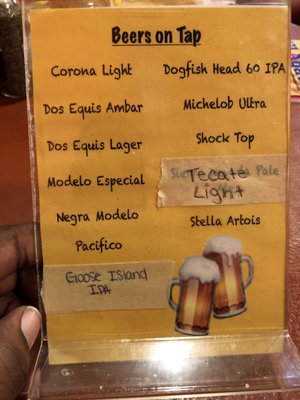 Beers on Tap
Corona Light
Dos Equis Ambar
Dos Equis Lager
Modelo Especial
Negra Modelo
Pacifico
Goose Island
IPA
Dogfish Head 60 IPA
Michelob Ultra
Shock Top
Tecate
Light
Pale
Stella Artois